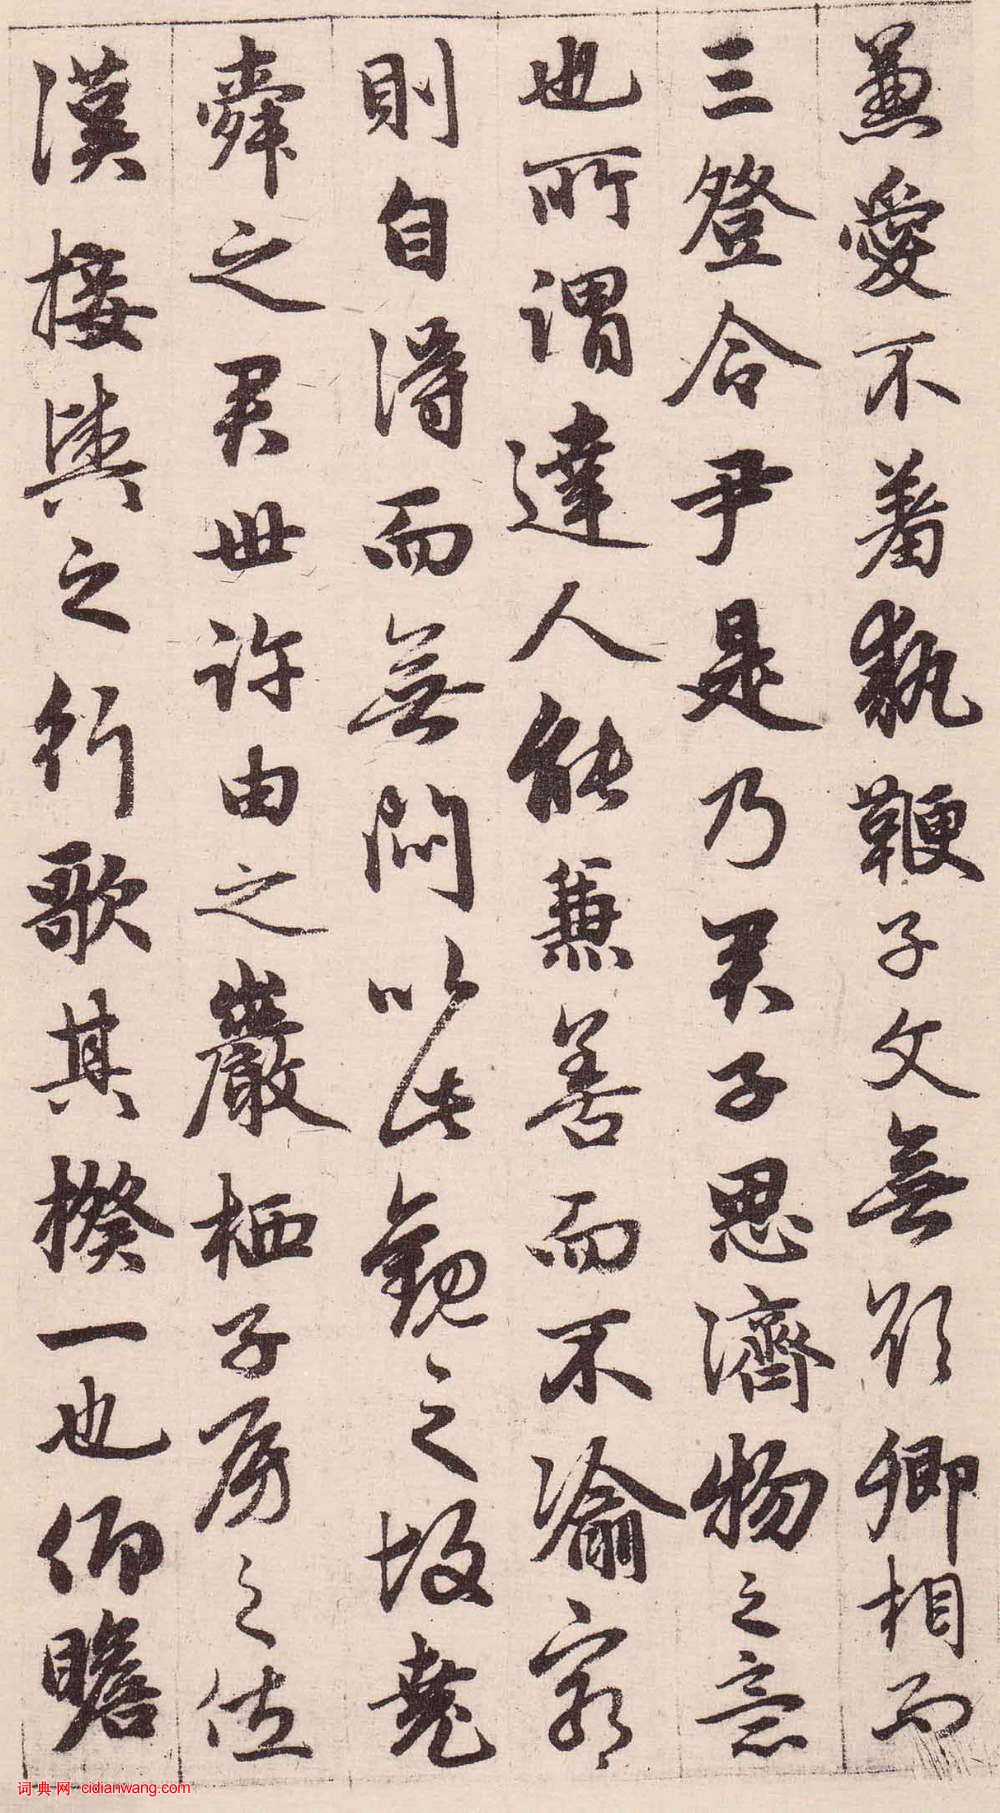 兼愛不著執鞭子文無欲卿相而
三登令尹是乃君子思濟物之意
也所謂達人能兼善而不渝窮
則自得而無悶以此觀之故堯
舜之君世許由之巖栖子房之佐
漢接輿之行歌其揆一也仰瞻
词典网 cidianwang.com